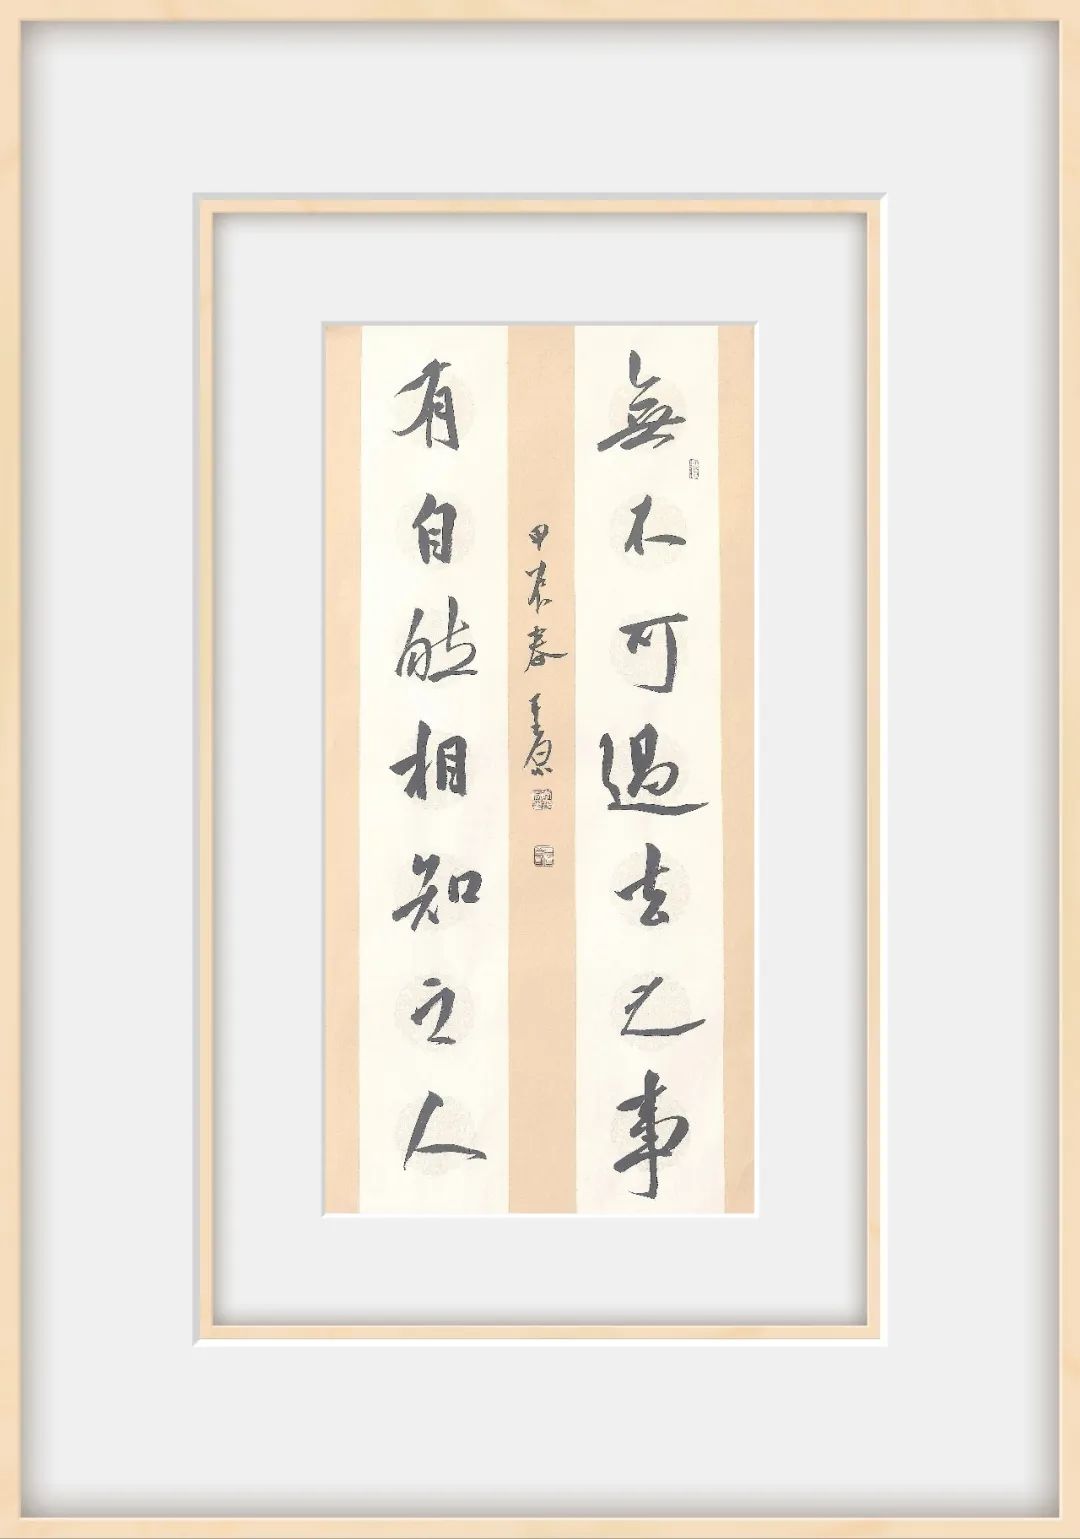 無不可過去之事
有自然相知之人
甲辰春